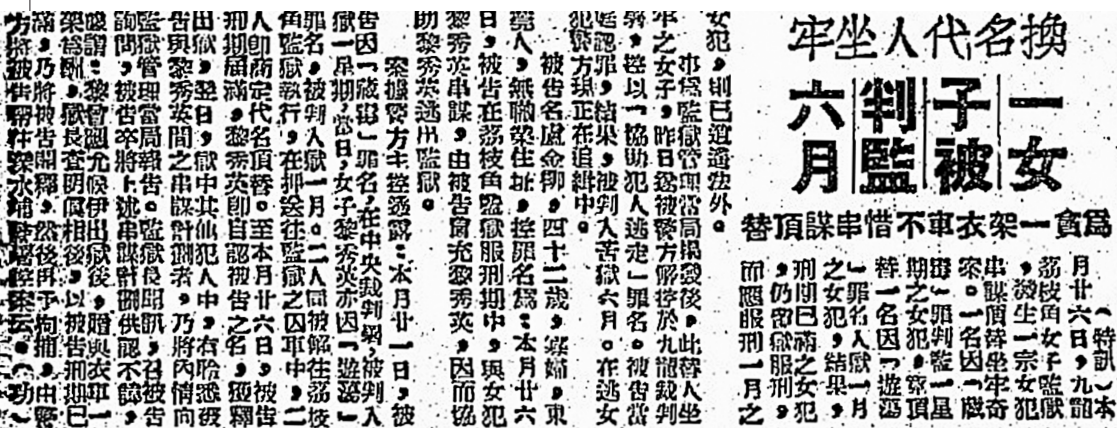 換名代人坐牢
一女
子被
判監
六月
爲貪一架衣車不惜串謀頂替
（特訊）本
月廿六日，九龍
荔枝角女子監獄
，發生一宗女犯
串謀頂替坐牢奇
案。一名因「藏
毒」罪判監一星
期之女犯，竟頂
替一名因「遊蕩
」罪名入獄一月
之女犯，結果，
刑期已滿之女犯
，仍需獄服刑，
而應服刑一月之
女犯，則已逍遙法外。
事爲監獄管理當局揭發後，此替人坐
牢之女子，昨日遂被警方解控於九龍裁判
署，控以「協助犯人逃走」罪名。被告當
庭認罪，結果，被判入苦獄六月。在逃女
犯警方現正在追緝中。
被告名盧金卿，四十二歲，寡婦，東
莞人，無職業住址。控罪名爲：本月廿六
日，被告在荔枝角監獄服刑期中，與女犯
黎秀英串謀，由被告冒充黎秀英，因而協
助黎秀英逃出監獄。
案據警方主控透露：本月廿一日，被
告因「藏毒」罪名，在中央裁判署，被判入
獄一星期，當日，女子黎秀英亦因「遊蕩」
罪名，被判入獄一月。二人同被解往荔枝
角監獄執行，在押送往監獄之囚車中，二
人卽商定代名頂替。至本月廿六日，被告
刑期屆滿，黎秀英卽自認被告之名，獲釋
出獄，翌日，獄中其他犯人中，有聆悉被
告與黎秀英間之串謀計劃者，乃將內情向
監獄管理當局報告。監獄長訊，召被告
詢問，被告卒將上述串謀計劃供認不諱，
謂：黎曾應允候伊出獄後，贈與衣車一
架爲酬，獄長查明眞相後，以被告刑期已
滿，乃將被告開釋，然後再予拘捕，由警
方將被告帶往深水埔警署控案云。（功）